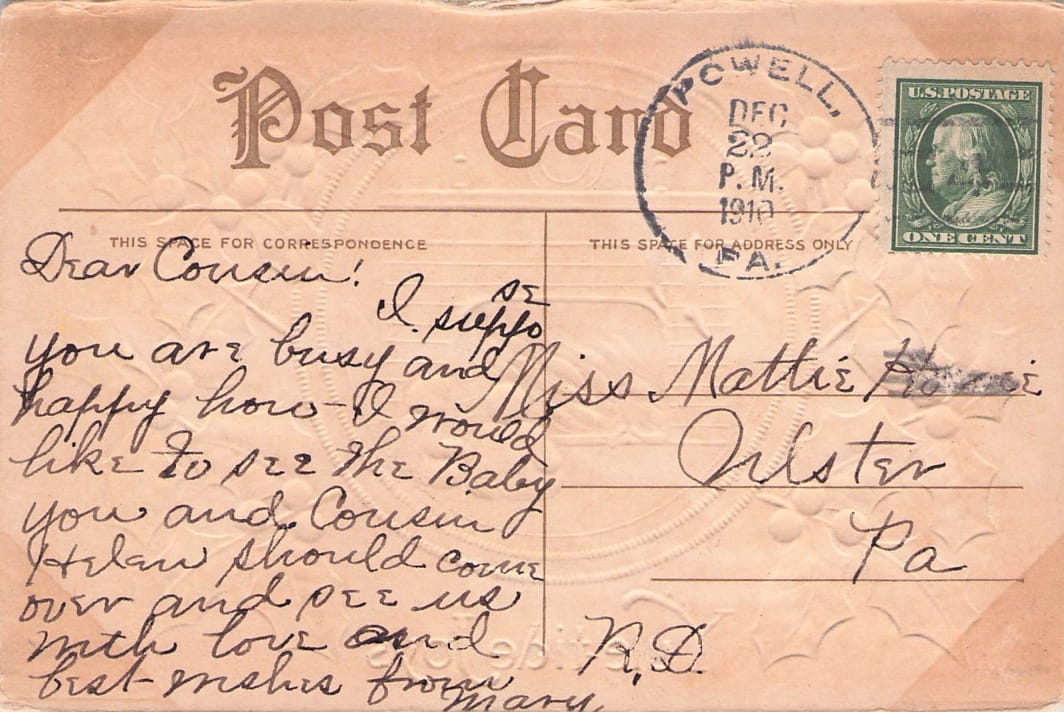 Post Card
POWELL,
DEC
22
P.M.
1910
PA.
U.S. POSTAGE
ONE CENT
THIS SPACE FOR CORRESPONDENCE
THIS SPACE FOR ADDRESS ONLY
Dear Cousin!
I suppose
you are busy and
happy how I would
like to see the Baby
you and Cousin
Helen should come
over and see us
with love and
best wishes from
Mary.
Miss Mattie
Ulster
Pa
R.D.